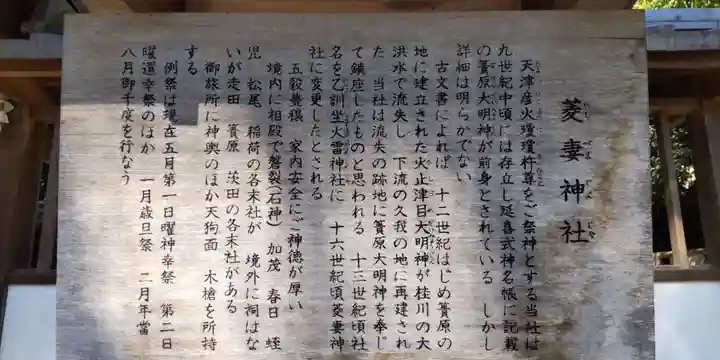 菱妻神社
ひしづまじんじゃ
天津彦火瓊瓊杵尊をご祭神とする当社は
九世紀中頃には存立し延喜式神名帳に記載
の簀原大明神が前身とされている しかし
詳細は明らかでない
古文書によれば 十二世紀はじめ簀原の
地に建立された火止津目大明神が桂川の大
洪水で流失し 下流の久我の地に再建され
た 当社は流失の跡地に簀原大明神を奉じ
て鎮座したものと思われる 十三世紀頃社
名を乙訓坐火雷神社に 十六世紀頃菱妻神
社に変更したとされる
五穀豊穣 家内安全にご神徳が厚い
境内に相殿で磐裂(石神) 加茂 春日 蛭
児 松尾 稲荷の各末社が 境外に祠はな
いが走田 簀原 茨田の各末社がある
御旅所に神輿のほか天狗面 木槍を所持
する
例祭は現在五月第一日曜神幸祭 第二日
曜還幸祭のほか 一月歳旦祭 二月年當
八月御千度を行なう